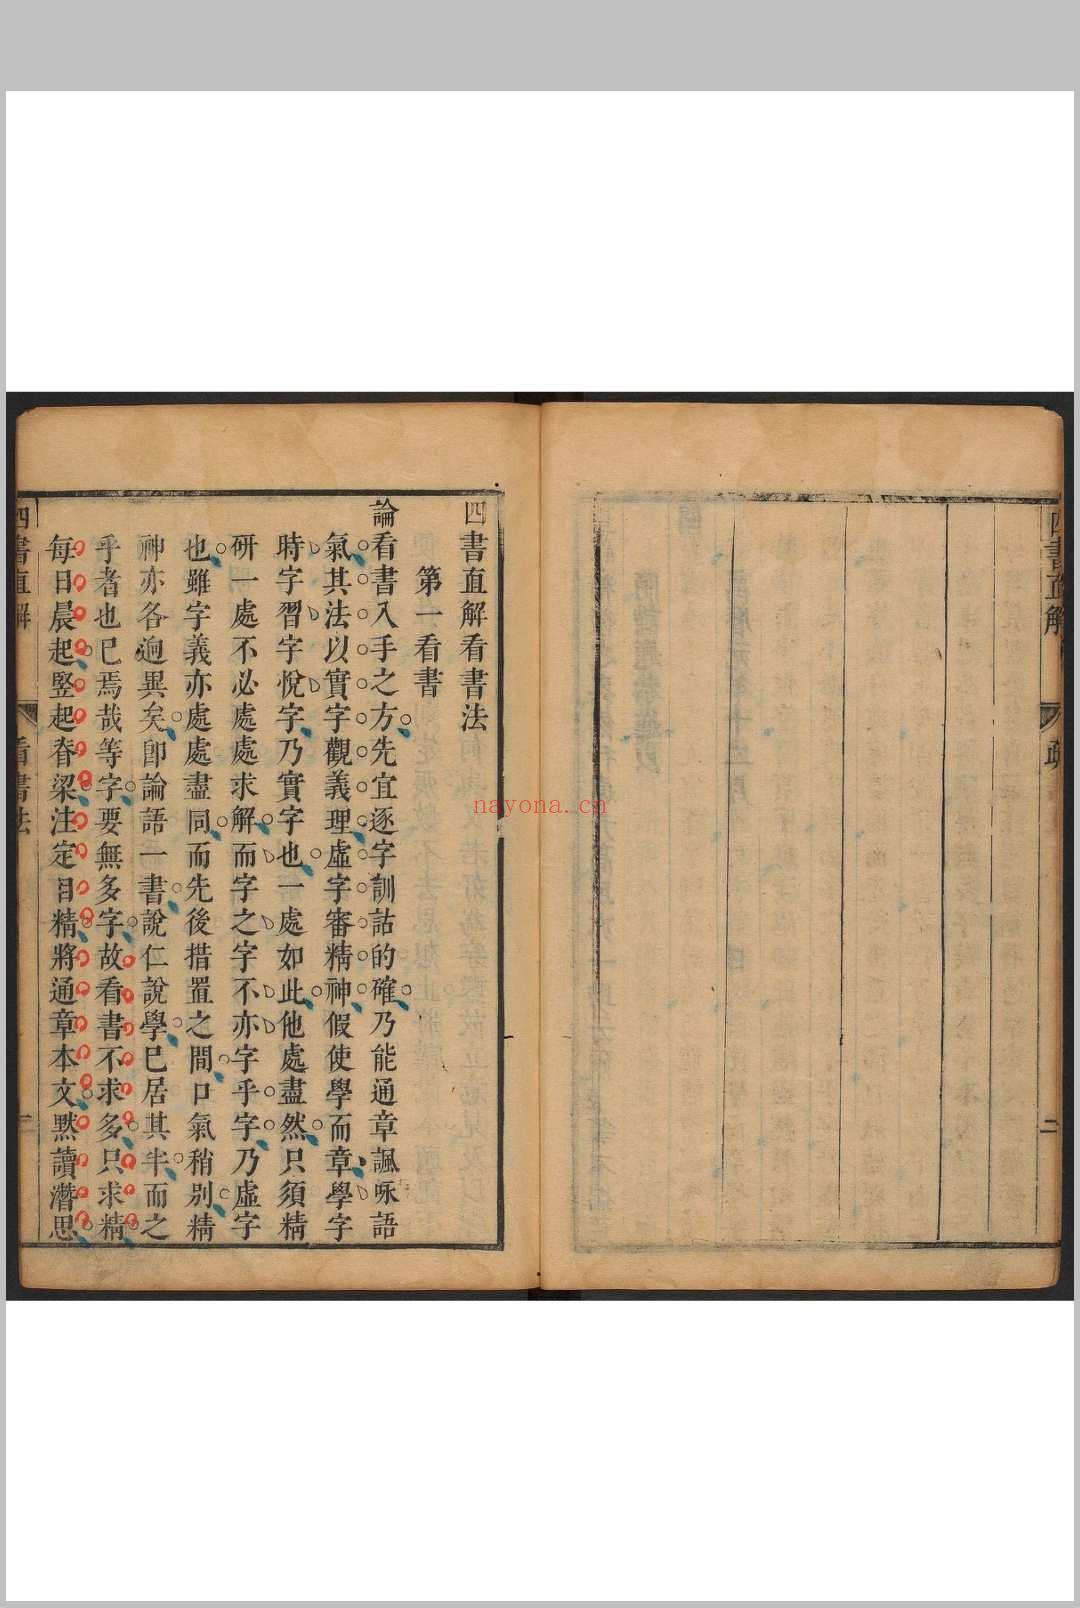 四書直解
疏
二
四書直解看書法
第一看書
論看書入手之方先宜逐字訓詁的確乃能通章諷咏語
氣其法以實字觀義理虛字審精神假使學而章學字
時字習字悅字乃實字也一處如此他處盡然只須精
研一處不必處處求解而字之字不亦字乎字乃虛字
也雖字義亦處處盡同而先後措置之間口氣稍別精
神亦各迥異矣卽論語一書說仁說學已居其半而之
乎者也已焉哉等字要無多字故看書不求多只求精
每日晨起竪起脊梁注定目精將通章本文黙讀潛思
四書直解
看書法
nayona.cn